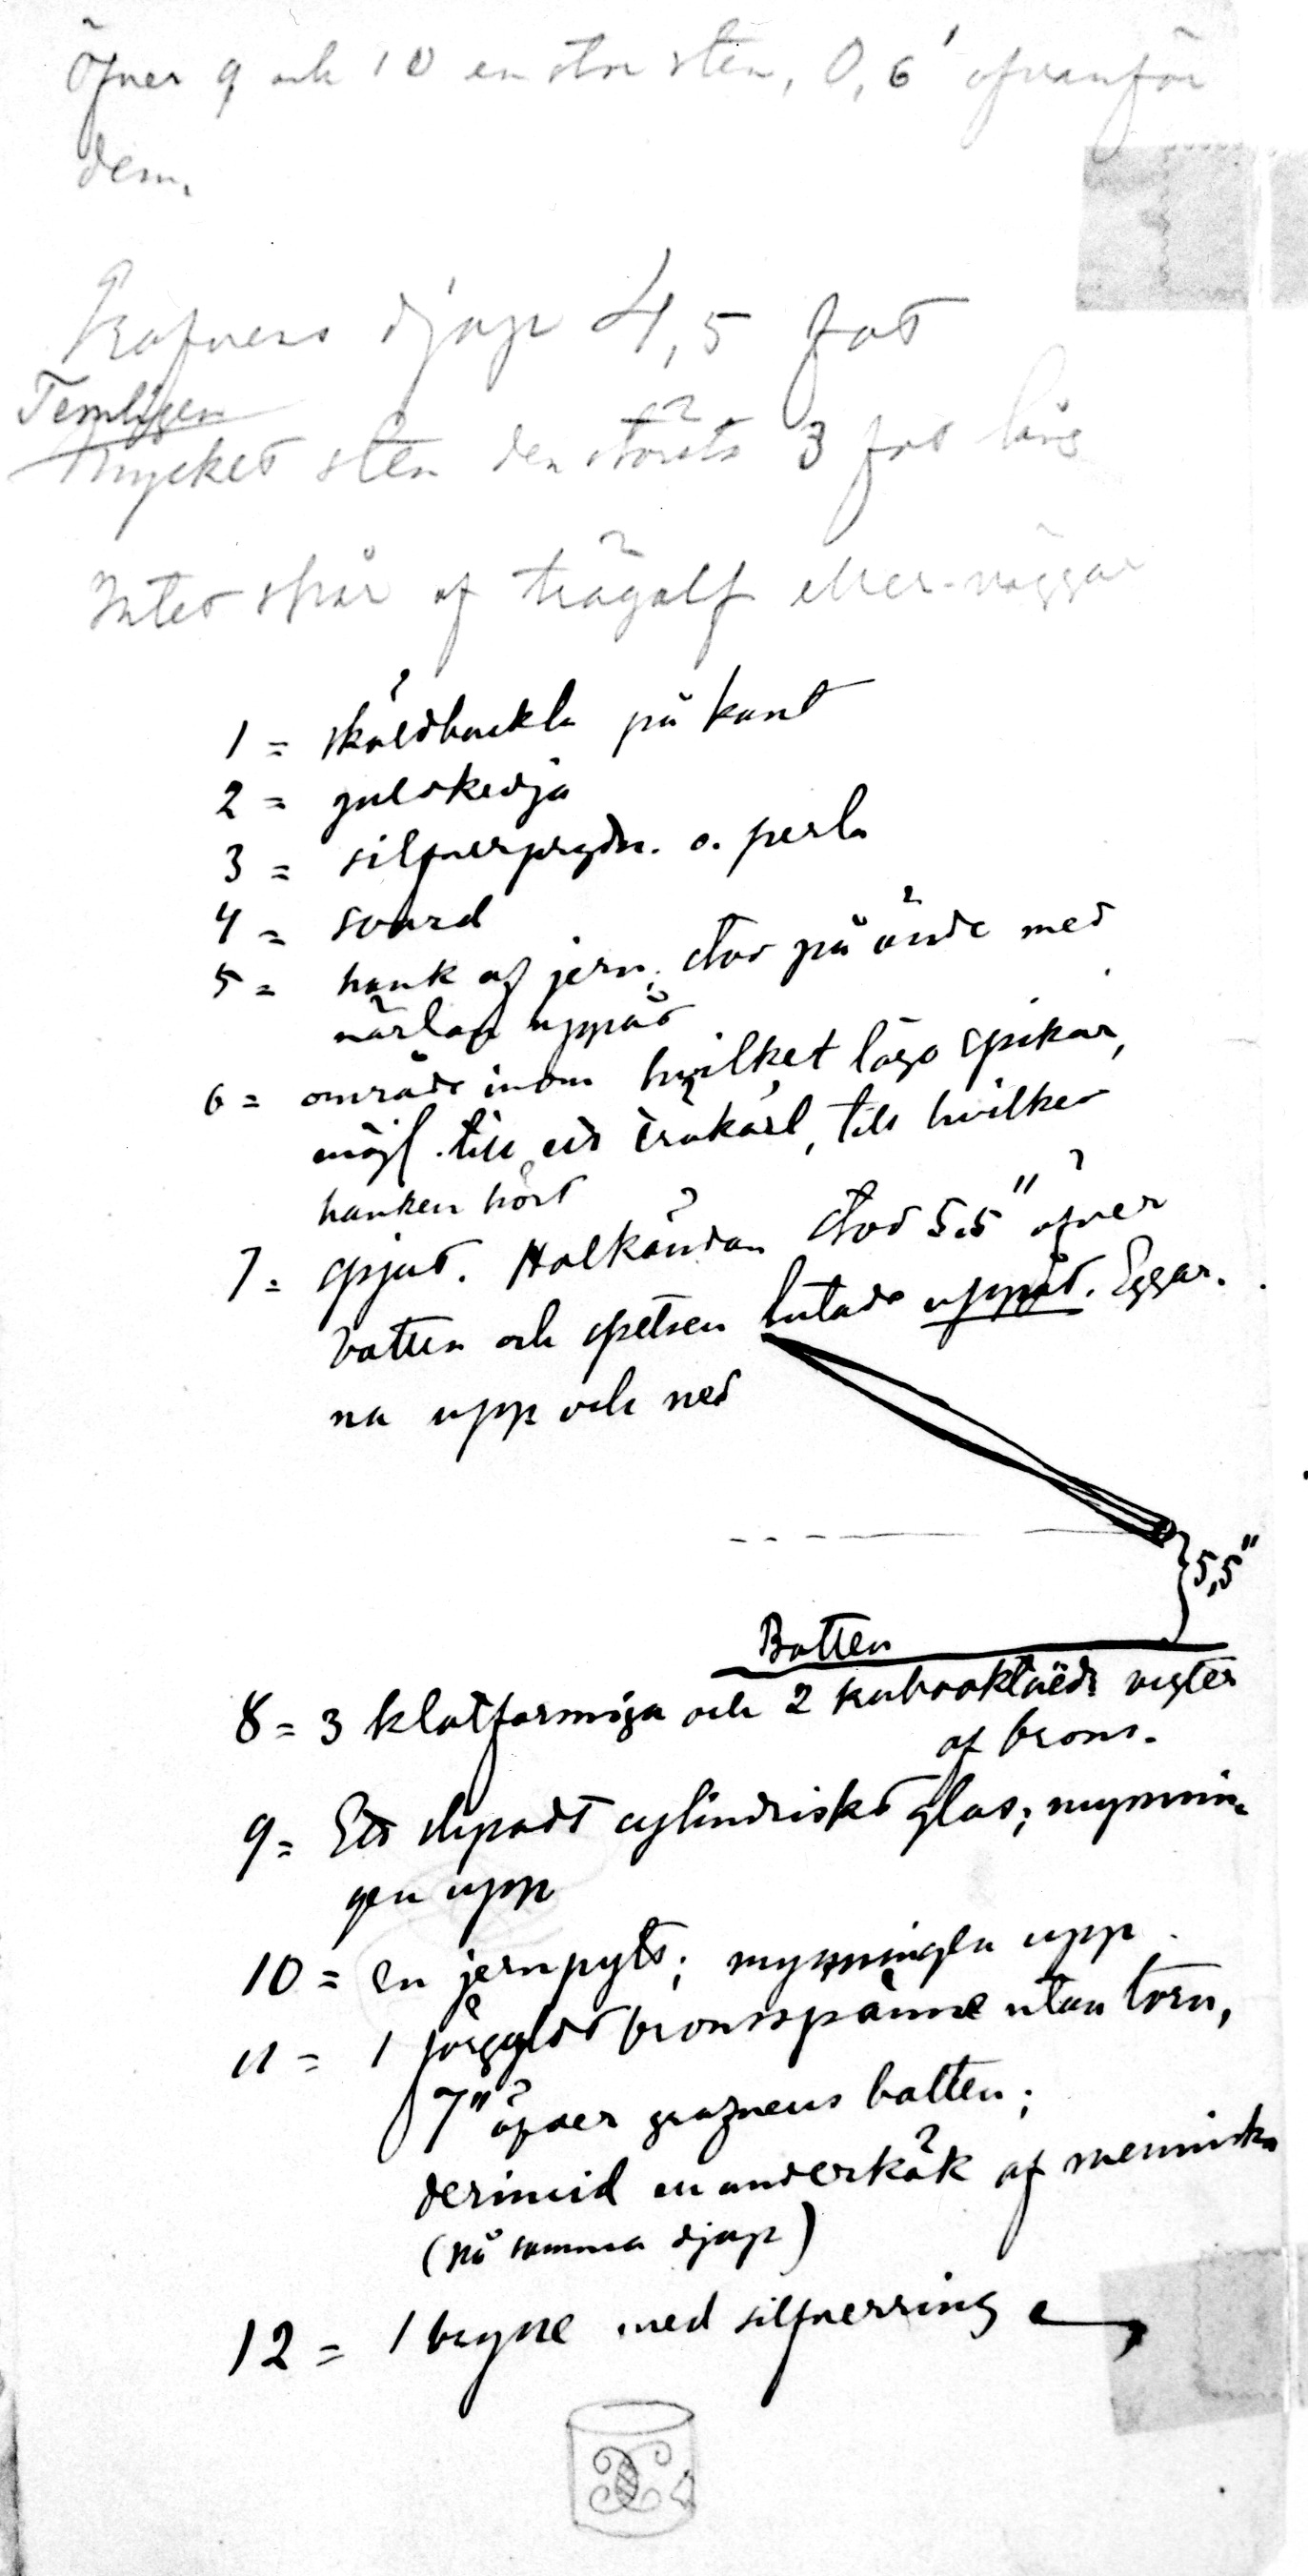 Öfver 9 och 10 en stor sten, 0,6' ofvanför
dem.
Grafvens djup 4,5 fot
Temligen
mycket sten den största 3 fot lång
Intet spår af trägolf eller -väggar
1 = sköldbuckla på kant
2 = gulskedja
3 = silfverprydn. o. perla
4 = svärd
5 = hank af jern; stod på ände med
uppåt
6 = område inom hvilket lågo spikar,
möjl. till ett träkärl, till hvilket
hanken hört
7 = spjut. Holkändan stod 5.5" öfver
botten och spetsen lutade uppåt. Eggar-
na upp och ned
5,5"
Botten
8 = 3 klotformiga och 2 kubooktaëdr. vigter
af brons.
9 = Ett slipadt cylindriskt glas; mynnin-
gen upp
10 = en jernpyts; mynningen upp.
11 = 1 förgyldt bronsspänne utan torn,
7" öfver grafvens botten;
derinvid en underkäk af menniska
(på samma djup)
12 = 1 bryne med silfverring